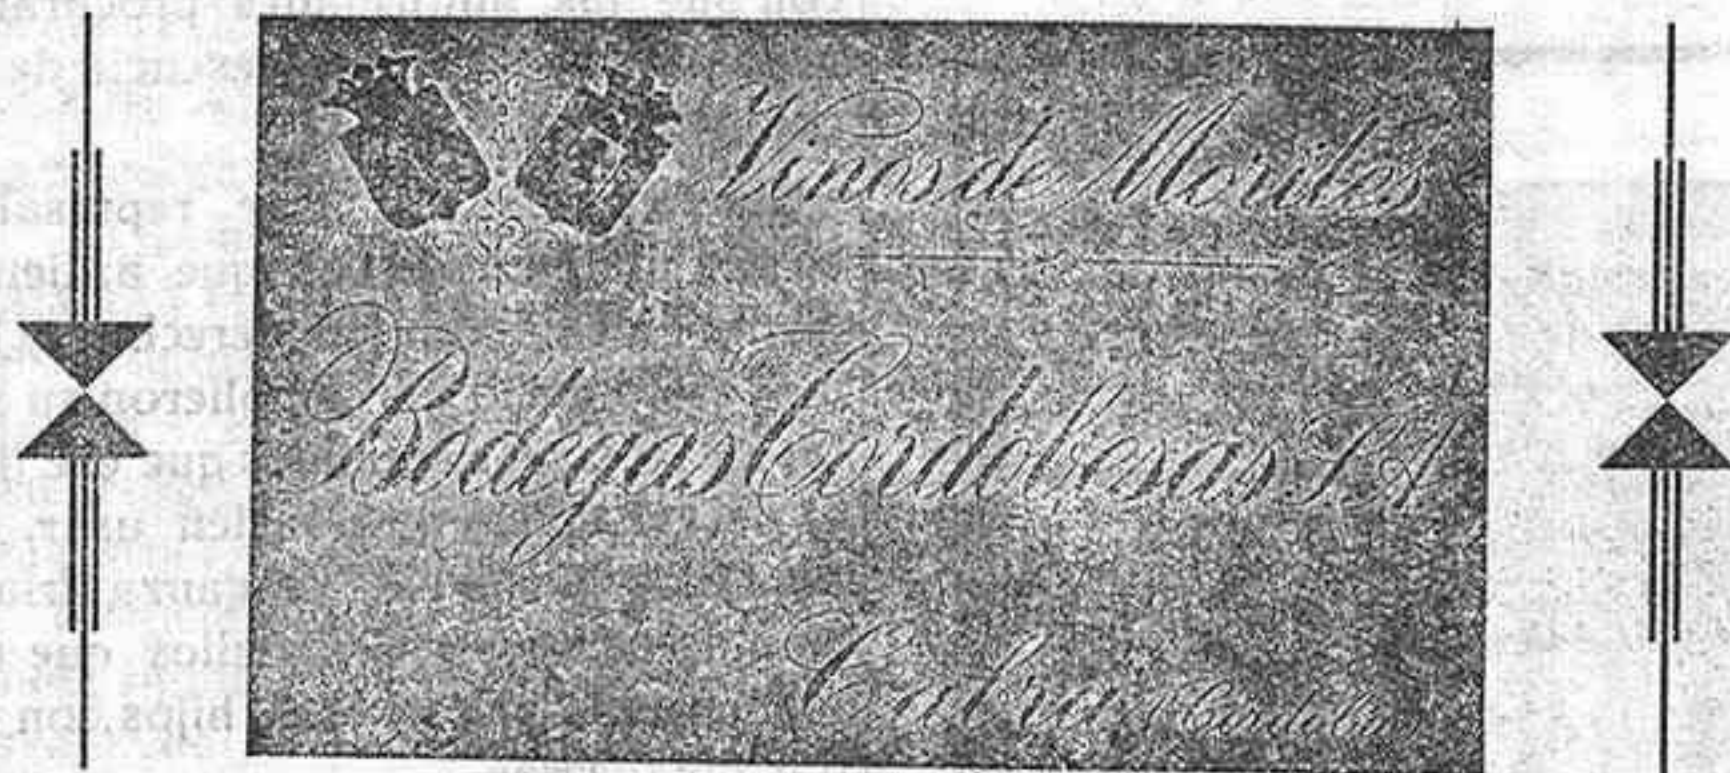 Vinos de Moriles
Bodegas Cordobesas S.A.
Cabra (Cordoba)